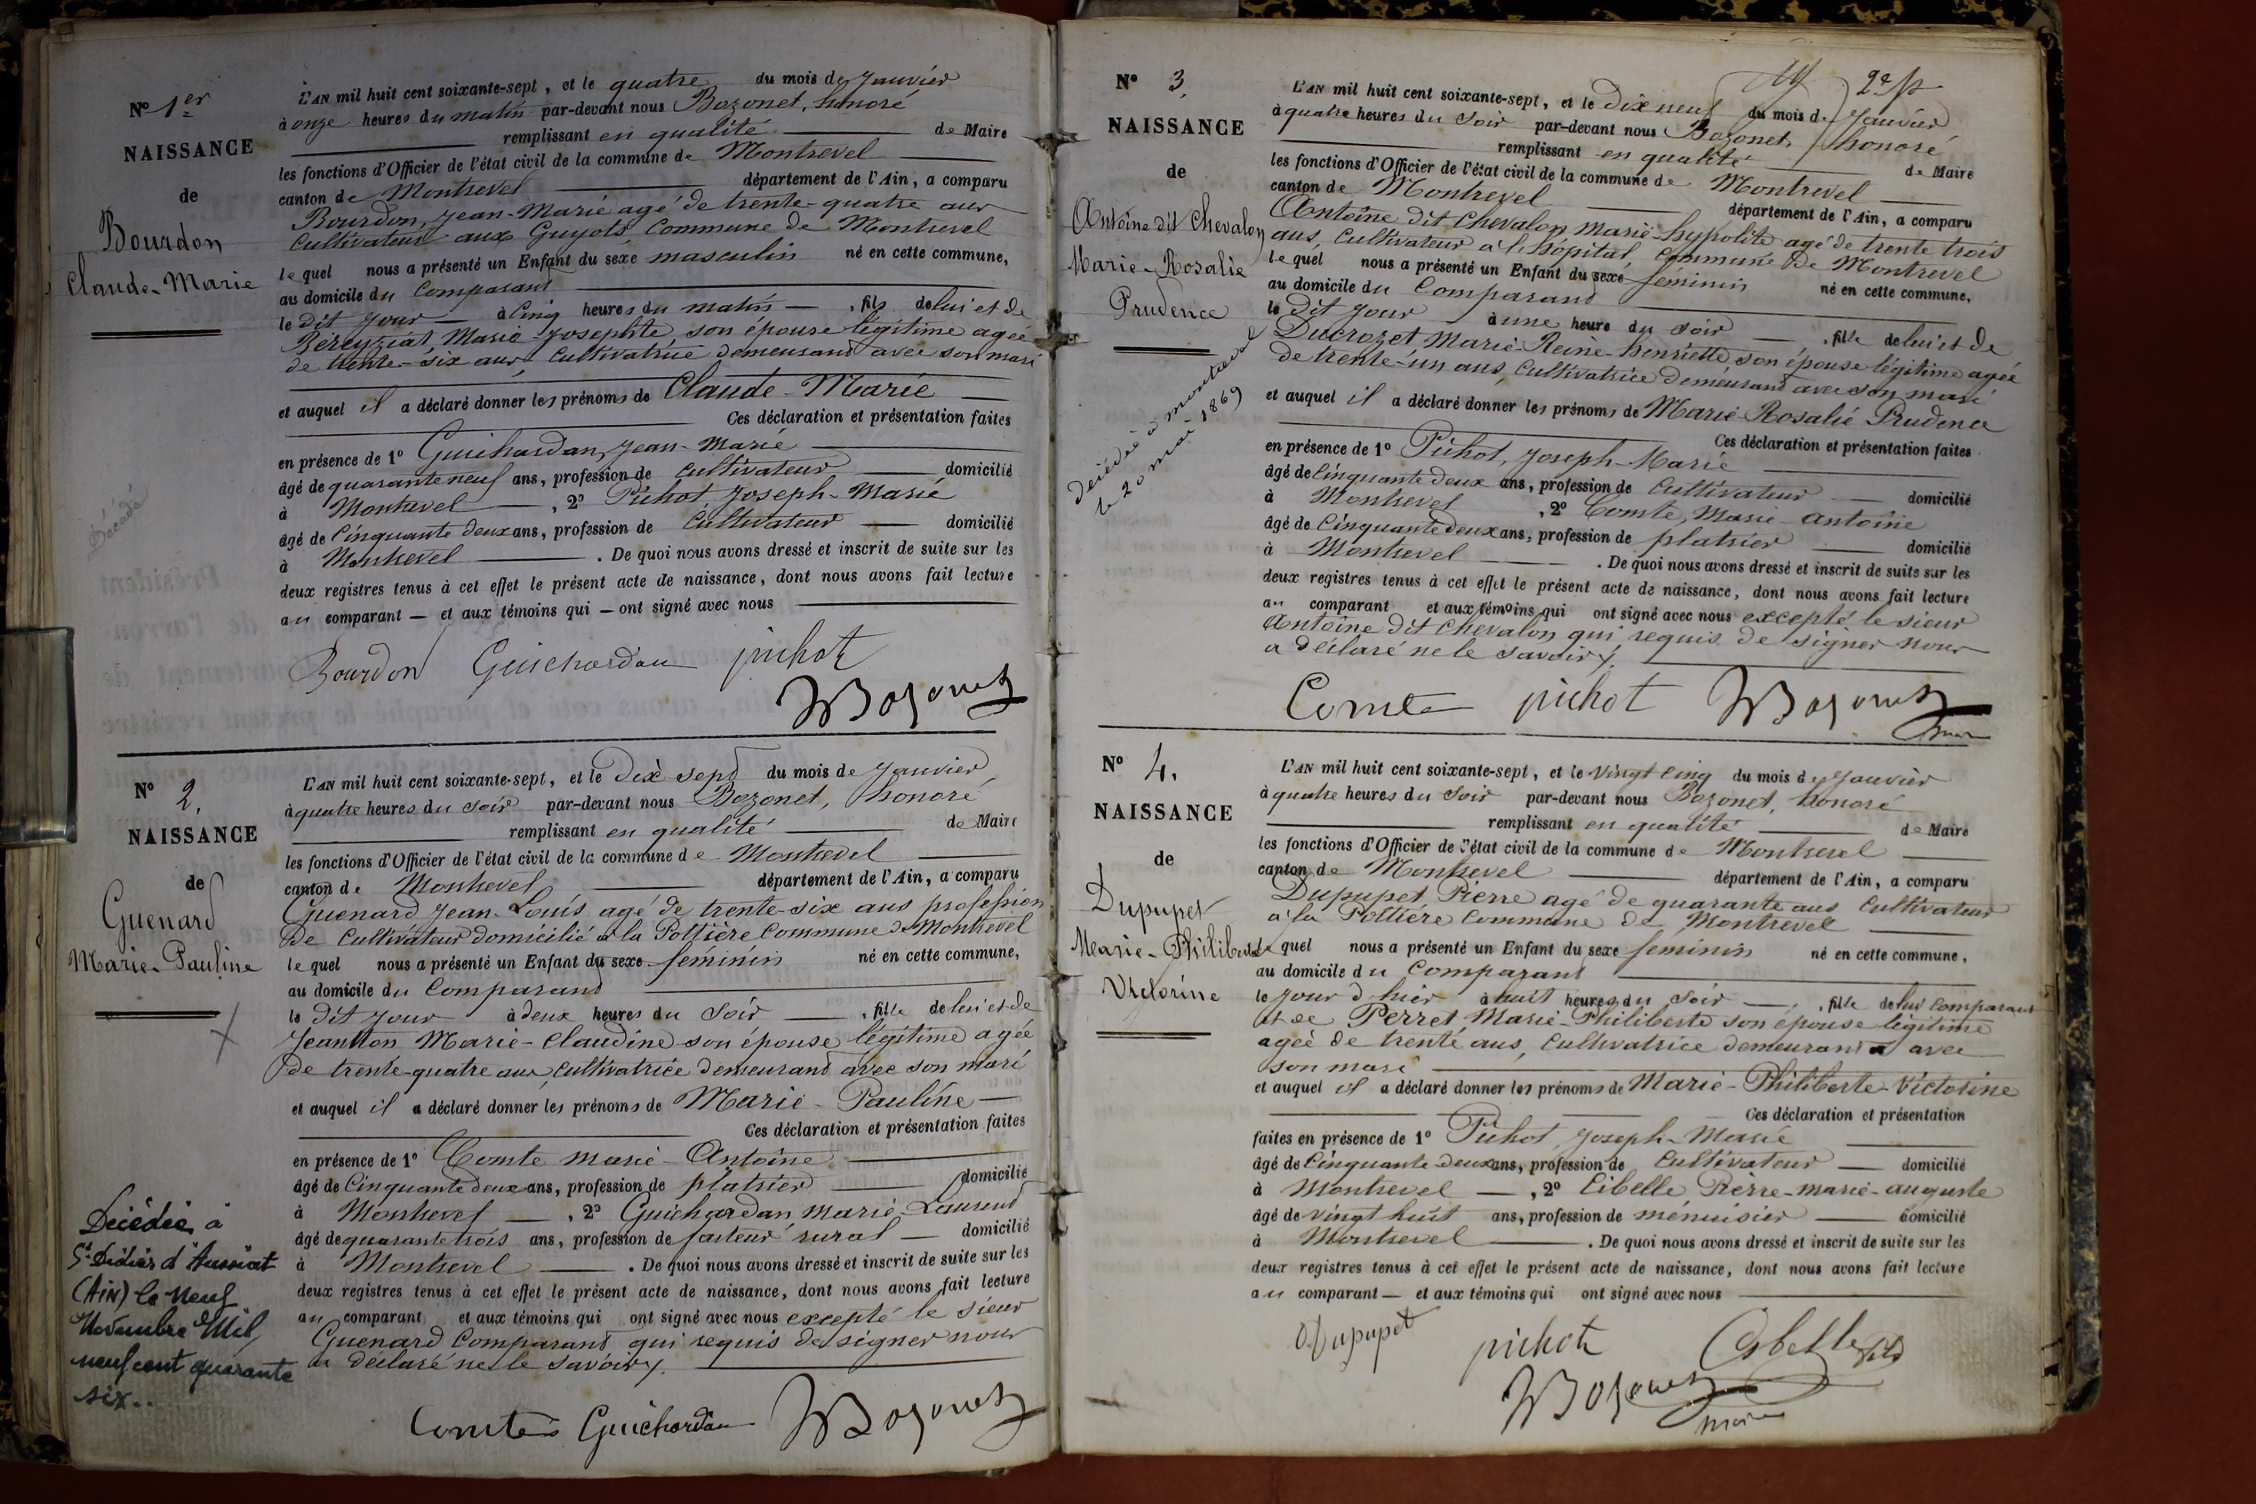 N° 1er
NAISSANCE
de
Bourdon
Claude-Marie
Décédé
L'AN mil huit cent soixante-sept, et le quatre du mois de Janvier
à onze heures du matin par-devant nous Bozonet, honoré
remplissant en qualité de Maire
les fonctions d'Officier de l'état civil de la commune de Montrevel
canton de Montrevel département de l'Ain, a comparu
Bourdon, Jean-Marie agé de trente-quatre ans
Cultivateur aux Guyots Commune de Montrevel
le quel nous a présenté un Enfant du sexe masculin né en cette commune,
au domicile du Comparant
le dit jour à Cinq heures du matin, fils de lui et de
Béréyziat Marie-Josephte, son épouse légitime agée
de trente-six ans, Cultivatrice demeurant avec son mari
et auquel il a déclaré donner les prénoms de Claude-Marie
Ces déclaration et présentation faites
en présence de 1° Guichardan, Jean-Marie
âgé de quarante neuf ans, profession de Cultivateur domicilié
à Montrevel, 2° Pichot Joseph-Marie
âgé de Cinquante deux ans, profession de Cultivateur domicilié
à Montrevel. De quoi nous avons dressé et inscrit de suite sur les
deux registres tenus à cet effet le présent acte de naissance, dont nous avons fait lecture
au comparant — et aux témoins qui — ont signé avec nous
Bourdon Guichardan pichot
Bozonet
N° 2.
NAISSANCE
de
Guenard
Marie-Pauline
Décédée à
St Didier d'Aussiat
(Ain) le neuf
Novembre Mil
neuf cent quarante
six..
L'AN mil huit cent soixante-sept, et le Dix sept du mois de Janvier,
à quatre heures du Soir par-devant nous Bozonet, honoré
remplissant en qualité de Maire
les fonctions d'Officier de l'état civil de la commune de Montrevel
canton de Montrevel département de l'Ain, a comparu
Guenard Jean-Louis agé de trente-six ans profession
de Cultivateur domicilié à la Poltière Commune de Montrevel
le quel nous a présenté un Enfant du sexe feminin né en cette commune,
au domicile du Comparant
le dit jour à deux heures du Soir, fille de lui et de
Jeanton Marie-Claudine son épouse légitime agée
de trente-quatre ans, Cultivatrice demeurant avec son mari
et auquel il a déclaré donner les prénoms de Marie-Pauline
Ces déclaration et présentation faites
en présence de 1° Comte Marie-Antoine
âgé de Cinquante deux ans, profession de platrier domicilié
à Montrevel, 2° Guichardan Marie-Laurent
âgé de quarante trois ans, profession de facteur rural domicilié
à Montrevel. De quoi nous avons dressé et inscrit de suite sur les
deux registres tenus à cet effet le présent acte de naissance, dont nous avons fait lecture
au comparant et aux témoins qui ont signé avec nous excepté le sieur
Guenard Comparant qui requis de signer nous
a déclaré ne le savoir
Comte Guichardan Bozonet
N° 3.
NAISSANCE
de
Antoine dit Chevalon
Marie-Rosalie
Prudence
Décédée à montrevel
le 20 mai 1869
2e
L'AN mil huit cent soixante-sept, et le Dix neuf du mois de Janvier
à quatre heures du Soir par-devant nous Bozonet, honoré
remplissant en qualité de Maire
les fonctions d'Officier de l'état civil de la commune de Montrevel
canton de Montrevel département de l'Ain, a comparu
Antoine dit Chevalon Marie-hypolite agé de trente trois
ans, Cultivateur à l'hôpital, Commune de Montrevel
le quel nous a présenté un Enfant du sexe féminin né en cette commune,
au domicile du Comparant
le dit jour à une heure du soir, fille de lui et de
Ducrozet Marie-Reine-henriette son épouse légitime agée
de trente-un ans, Cultivatrice demeurant avec son mari
et auquel il a déclaré donner les prénoms de Marie-Rosalie Prudence
Ces déclaration et présentation faites
en présence de 1° Pichot, Joseph-Marie
âgé de Cinquante deux ans, profession de Cultivateur domicilié
à Montrevel, 2° Comte, Marie-antoine
âgé de Cinquante deux ans, profession de platrier domicilié
à Montrevel. De quoi nous avons dressé et inscrit de suite sur les
deux registres tenus à cet effet le présent acte de naissance, dont nous avons fait lecture
au comparant et aux témoins qui ont signé avec nous excepté le sieur
Antoine dit Chevalon qui requis de signer nous
a déclaré ne le savoir
Comte pichot Bozonet
maire
N° 4.
NAISSANCE
de
Dupupet
Marie-Philiberte
Victorine
L'AN mil huit cent soixante-sept, et le Vingt Cinq du mois de Janvier
à quatre heures du Soir par-devant nous Bozonet, honoré
remplissant en qualité de Maire
les fonctions d'Officier de l'état civil de la commune de Montrevel
canton de Montrevel département de l'Ain, a comparu
Dupupet, Pierre agé de quarante ans Cultivateur
à la Poltière Commune de Montrevel
le quel nous a présenté un Enfant du sexe feminin né en cette commune,
au domicile du Comparant
le jour d'hier à huit heures du Soir, fille de lui Comparant
et de Perret Marie-Philiberte son épouse légitime
agée de trente ans, Cultivatrice demeurant avec
son mari
et auquel il a déclaré donner les prénoms de Marie-Philiberte-Victorine
Ces déclaration et présentation
faites en présence de 1° Pichot, Joseph-Marie
âgé de Cinquante deux ans, profession de Cultivateur domicilié
à Montrevel, 2° Cibelle Pierre-marie-auguste
âgé de vingt huit ans, profession de ménuisier domicilié
à Montrevel. De quoi nous avons dressé et inscrit de suite sur les
deux registres tenus à cet effet le présent acte de naissance, dont nous avons fait lecture
au comparant — et aux témoins qui ont signé avec nous
Dupupet pichot Cibelle fils
Bozonet
maire